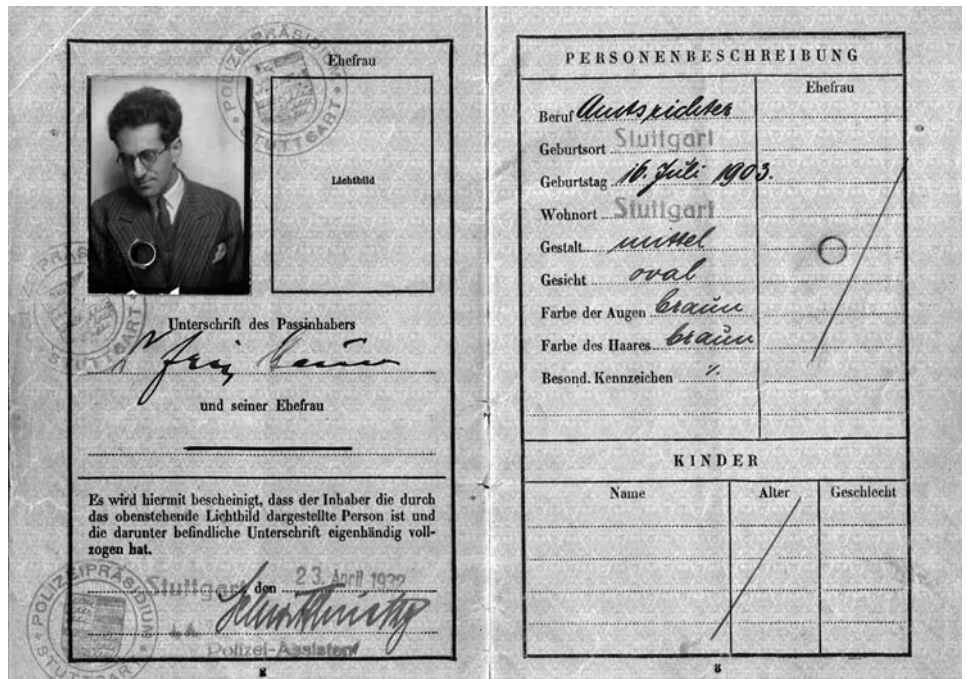 POLIZEIPRÄSIDIUM STUTTGART
Ehefrau
Lichtbild
POLIZEIPRÄSIDIUM STUTTGART
Unterschrift des Passinhabers
und seiner Ehefrau
Es wird hiermit bescheinigt, dass der Inhaber die durch
das obenstehende Lichtbild dargestellte Person ist und
die darunter befindliche Unterschrift eigenhändig voll-
zogen hat.
Stuttgart den 23. April 1932
POLIZEIPRÄSIDIUM STUTTGART
Polizei-Assistent
PERSONENBESCHREIBUNG
Ehefrau
Beruf Amtsrichter
Geburtsort Stuttgart
Geburtstag 16. Juli 1903.
Wohnort Stuttgart
Gestalt mittel
Gesicht oval
Farbe der Augen braun
Farbe des Haares braun
Besond. Kennzeichen
KINDER
Name Alter Geschlecht